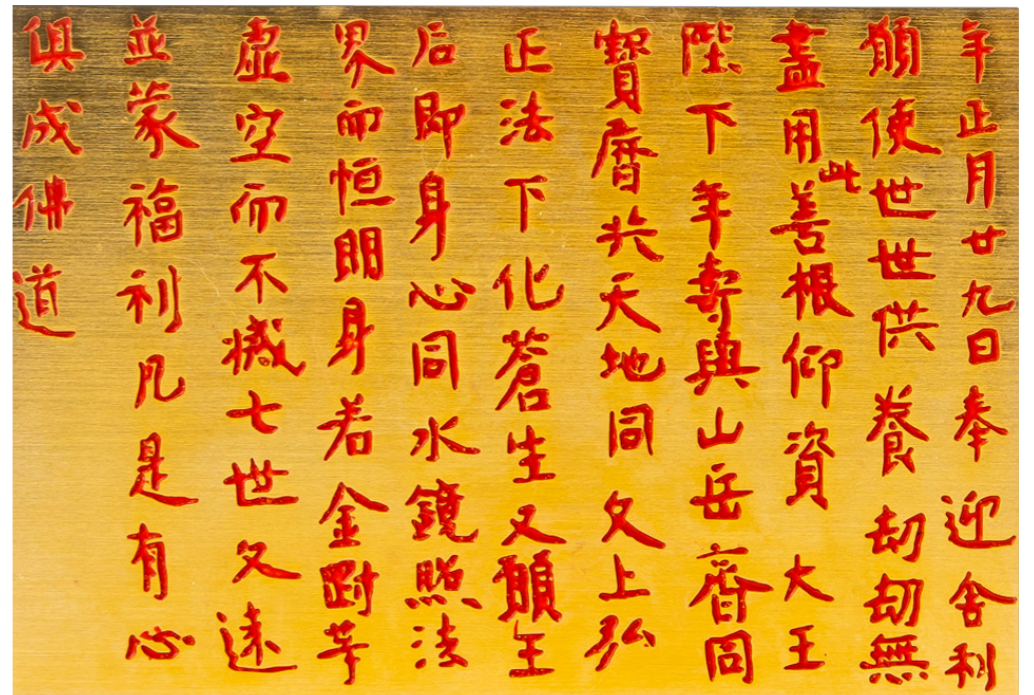 年正月廿九日奉迎舍利
願使世世供養劫劫無
盡用此善根仰資 大王
陛下年壽與山岳齊固
寶曆共天地同久上弘
正法下化蒼生又願王
后即身心同水鏡照法
界而恒明身若金剛等
虛空而不滅七世久遠
並蒙福利凡是有心
俱成佛道